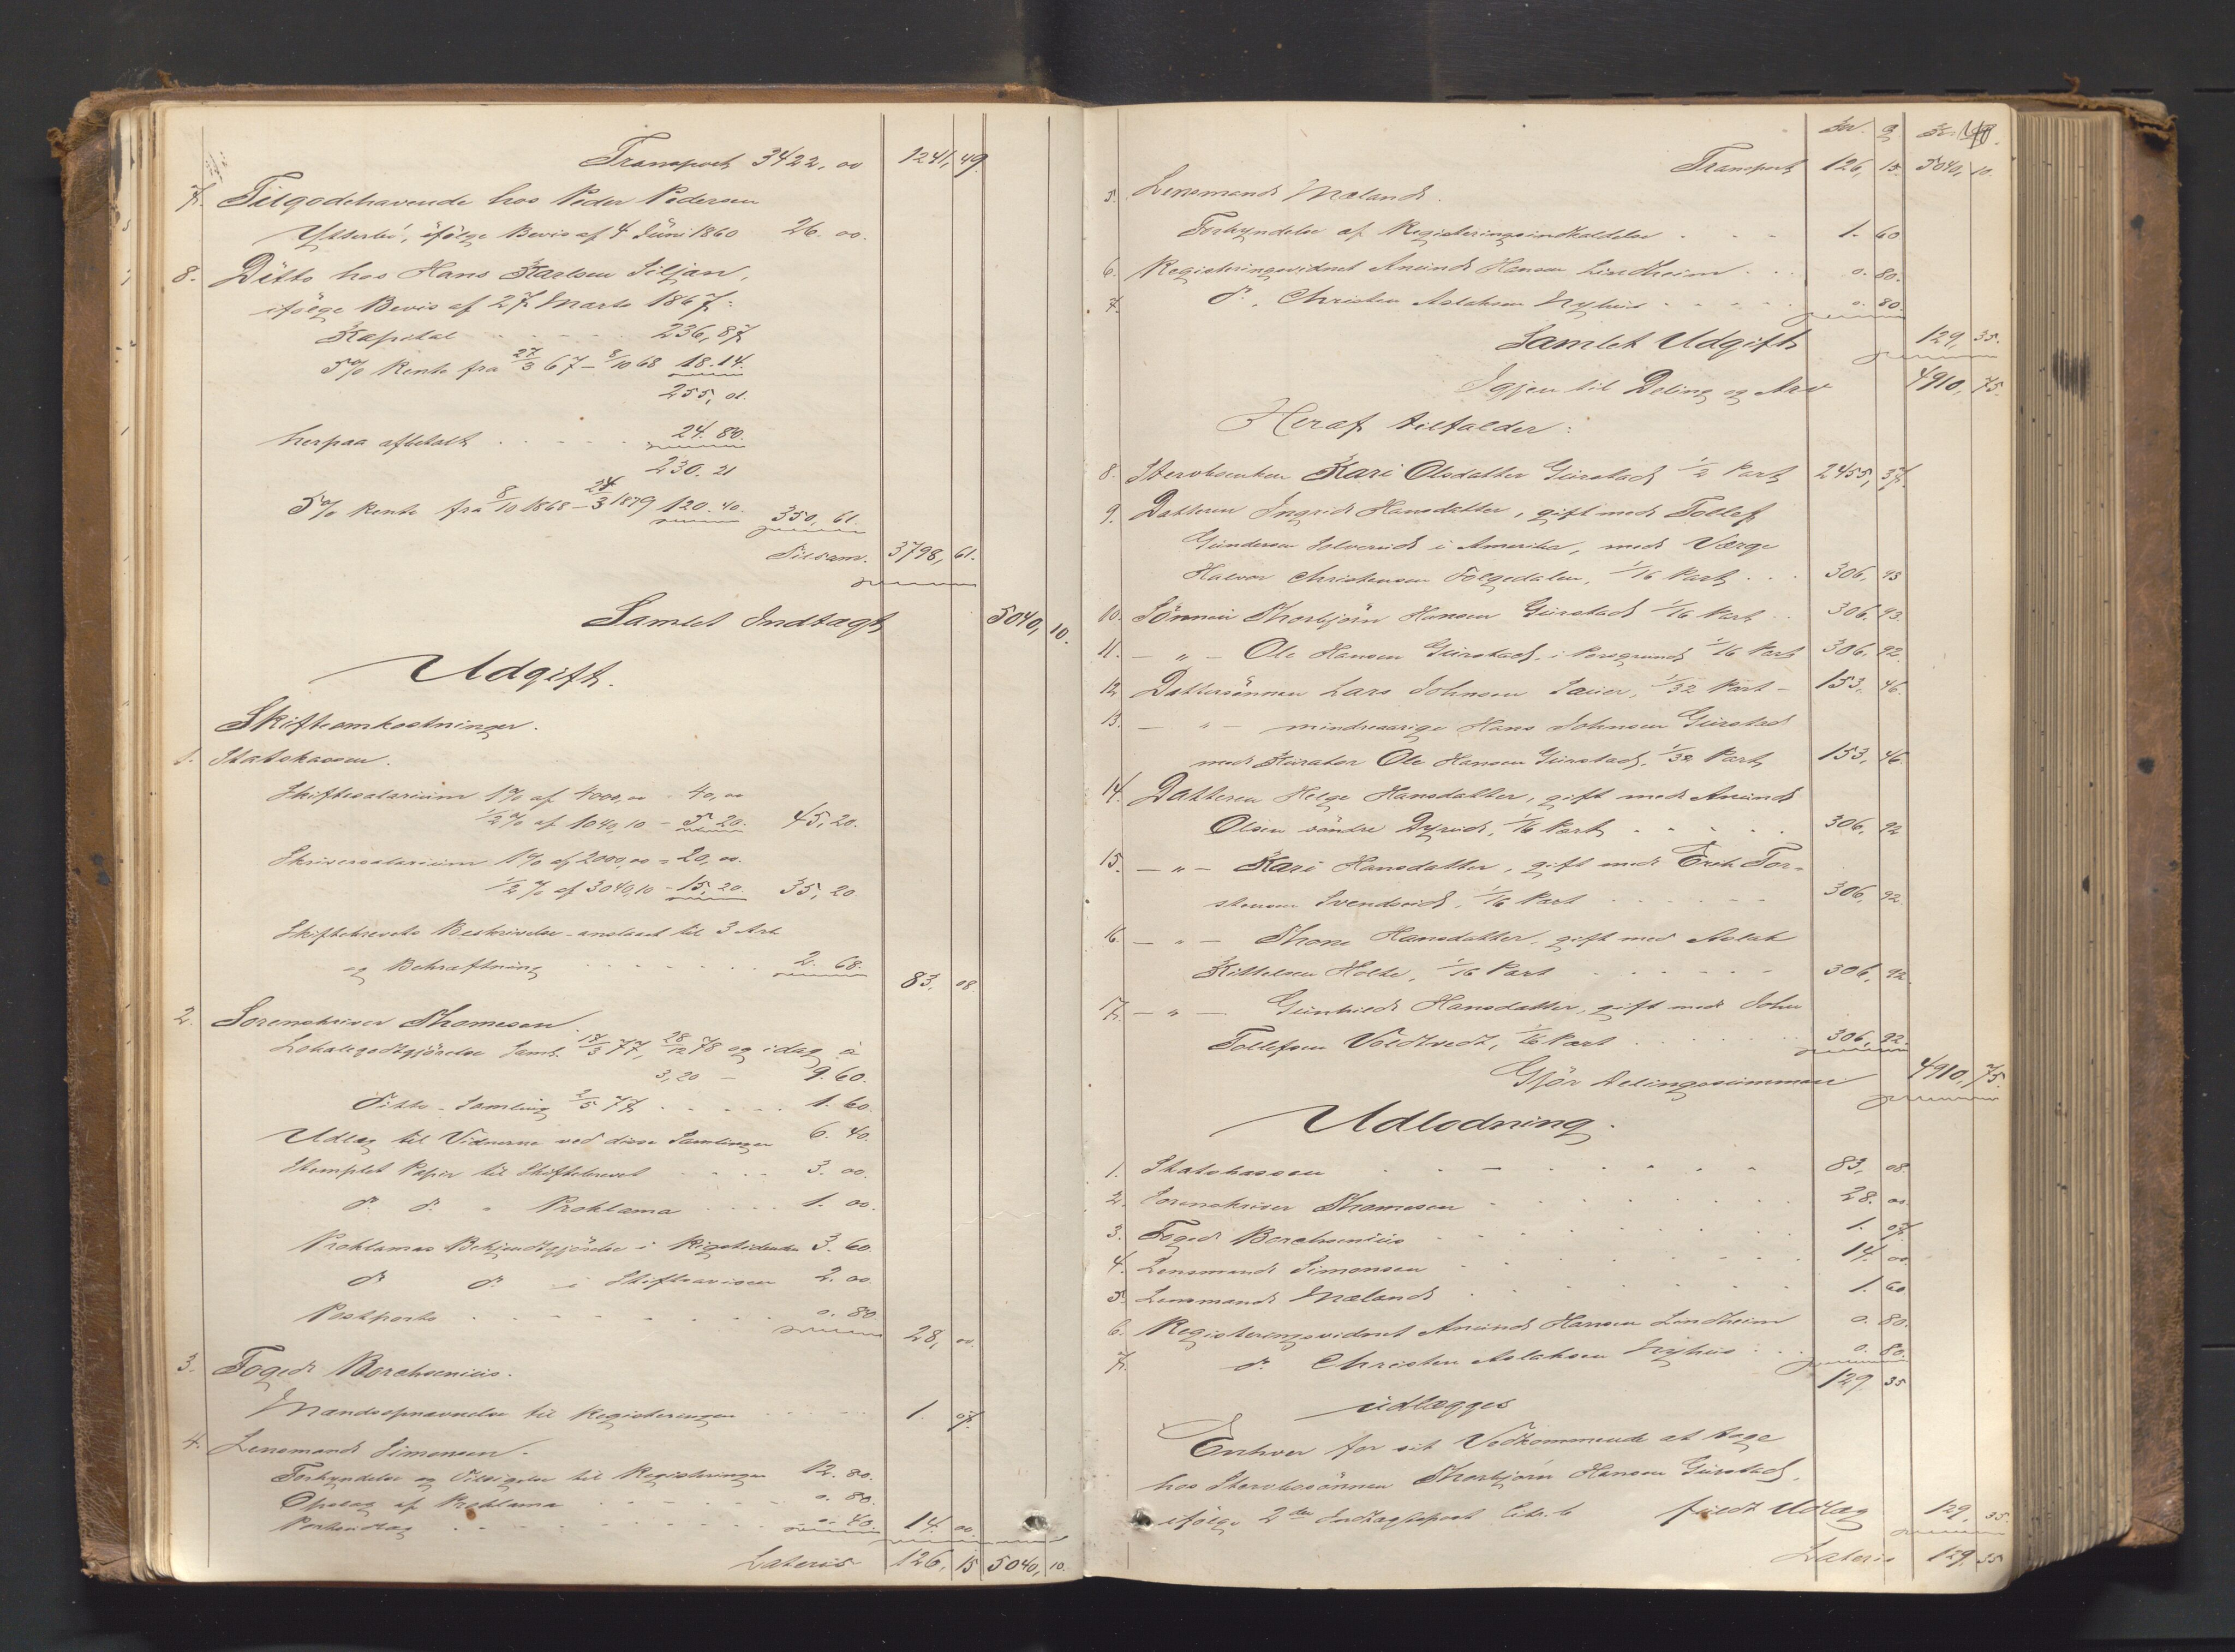 Transport 3422,00 1241,49.
7. Tilgodehavende hos Peder Pedersen
Ytterbö, ifölge Bevis af 4 Juni 1860 26.00.
8. Ditto hos Hans Karlsen Siljan,
ifölge Bevis af 27 Marts 1867:
Kapital 236,87
5% Rente fra 27/3 67 - 8/10 68 18.14.
255,01.
herpaa afbetalt 24.80.
230.21
5% Rente fra 8/10 1868 - 24/3 1879 120.40. 350,61.
Tilsam. 3798,61.
Samlet Indtægt 5040,10.
Udgift.
Skifteomkostninger.
1. Statskassen.
Skiftesalarium 1% af 4000,00 - 40,00
1/2% af 1040,10 - 5.20. 45,20.
Skriversalarium 1% af 2000,00 = 20,00.
1/2% af 3040,10 - 15,20. 35,20
Skiftebrevets Beskrivelse - anslaaet til 3 Ark
og Bekræftning 2.68. 83,08.
2. Sorenskriver Thomesen.
Lokalegodtgjörelse Saml. 17/3 77, 28/12 78 og idag à
3,20 - 9.60.
Ditto - Samling 2/5 77 1.60.
Udlæg til Vidnerne ved disse Samlinger 6.40.
Stemplet Papir til Skiftebrevet 3.00.
do. do. " Proklama 1.00.
Proklamas Bekjendtgjörelse i Rigstidenden 3.60.
do do. i Stiftsavisen 2.00.
Postporto 0.80. 28,00.
3. Foged Borchsenius.
Mandsopnævnelse til Registeringen 1.07.
4. Lensmand Simonsen.
Forkyndelse og Tilsigelse til Registeringen 12.80.
Opslag af Proklama 0.80.
Portoudlæg 0.40. 14.00.
Lateris 126,15 5040,10.
Kr. Ø Kr. 148.
Transport 126,15. 5040,10.
5. Lensmand Mæland.
Forkyndelse af Registeringsindkaldelse 1.60
6. Registeringsvidnet Anund Hansen Lindheim 0.80.
7. do. Christen Aslaksen Nyhus 0.80.
Samlet Udgift 129,35.
Igjen til Deling og Arv 4910,75.
Heraf tilfalder:
8. Stervboenken Kari Olsdatter Gurstad 1/2 Part 2455,37.
9. Datteren Ingrid Hansdatter, gift med Tollef
Gundersen Solverud i Amerika, med Værge
Halvor Christensen Folgedalen, 1/16 Part 306,93
10. Sönnen Thorbjörn Hansen Gurstad 1/16 Part 306.93.
11. - " - Ole Hansen Gurstad, i Porsgrund 1/16 Part 306.92.
12. Dattersönnen Lars Johnsen Sauer, 1/32 Part - 153.46.
13. - " - mindreaarige Hans Johnsen Gurstad
med Kurator Ole Hansen Gurstad, 1/32 Part 153,46.
14. Datteren Helge Hansdatter, gift med Anund
Olsen söndre Dyrud, 1/16 Part 306,92
15. - " - Kari Hansdatter, gift med Erik Tor=
stensen Svendseid, 1/16 Part 306,92.
16. - " - Thone Hansdatter, gift med Aslak
Kittelsen Holte, 1/16 Part 306,92.
17. - " - Gunhild Hansdatter, gift med John
Tollefsen Voldtvedt, 1/16 Part 306,92.
Gjör Delingssummen 4910,75.
Udlodning.
1. Statskassen 83,08.
2. Sorenskriver Thomesen 28.00.
3. Foged Borchsenius 1.07.
4. Lensmand Simonsen 14.00.
5. Lensmand Mæland 1.60
6. Registeringsvidnet Anund Hansen Lindheim 0.80.
7. do. Christen Aslaksen Nyhus 0.80.
129 35
udlægges
Enhver for sit Vedkommende at tage
hos Stervbosönnen Thorbjörn Hansen Gurstad,
ifölge 2den Indtægtspost Litr. b fuldt Udlæg 129,35.
Lateris 129.35